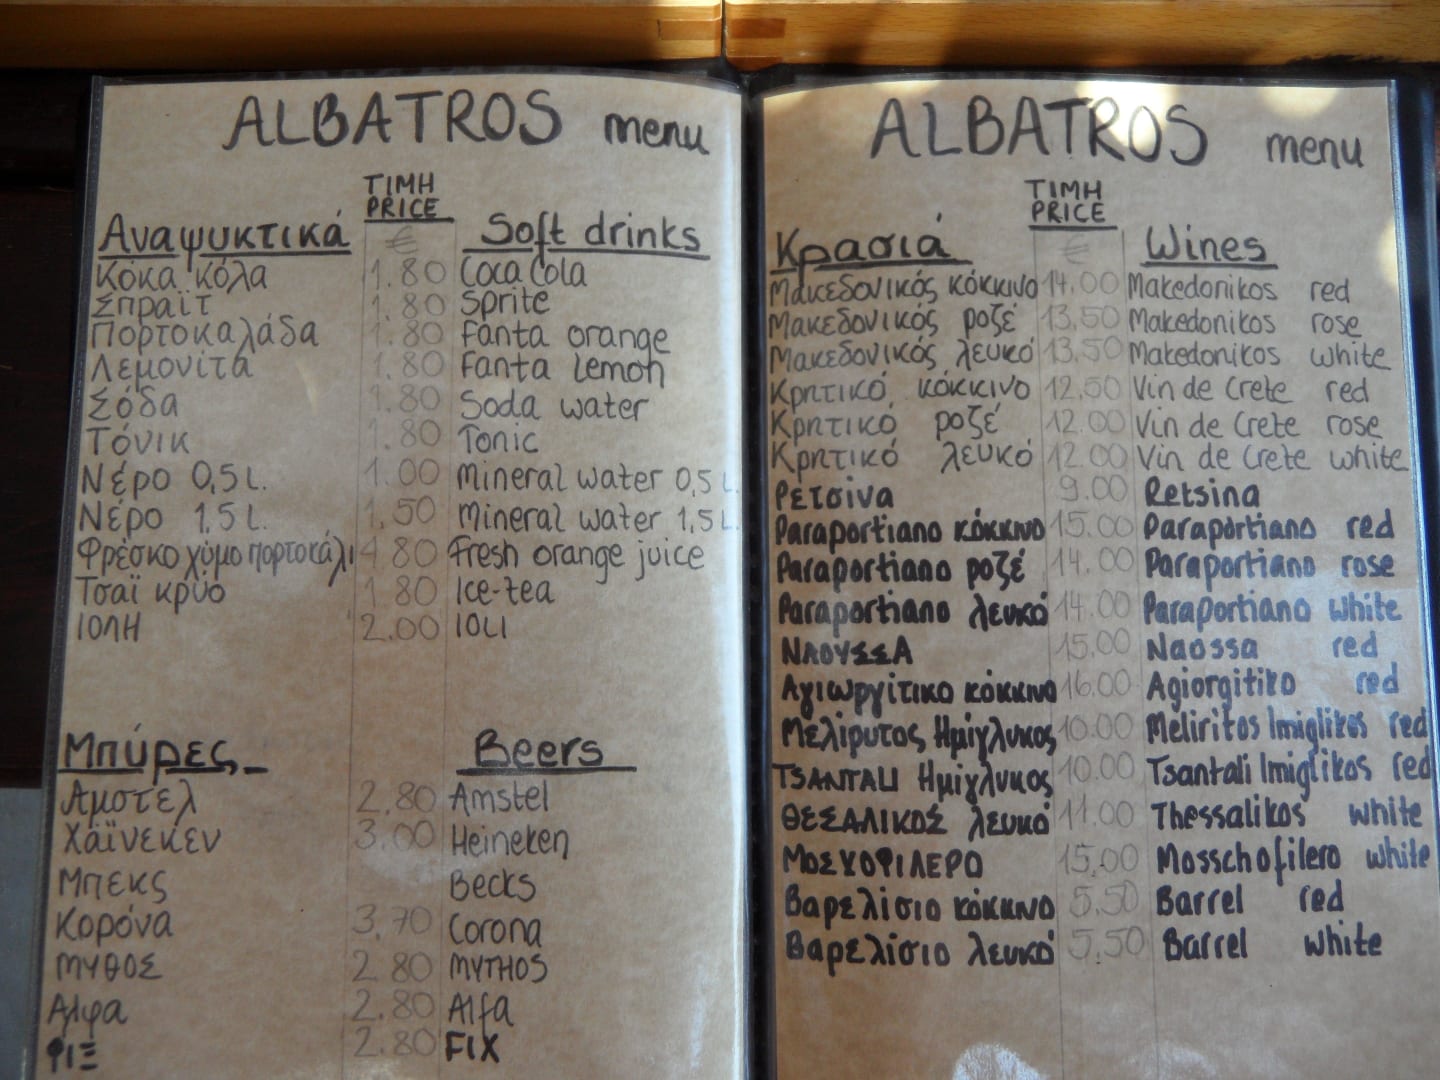 ALBATROS menu
ΤΙΜΗ
PRICE
Αναψυκτικά € Soft drinks
Κόκα κόλα 1.80 Coca Cola
Σπραϊτ 1.80 Sprite
Πορτοκαλάδα 1.80 Fanta orange
Λεμονίτα 1.80 Fanta lemon
Σόδα 1.80 Soda water
Τόνικ 1.80 Tonic
Νέρο 0,5 L. 1.00 Mineral water 0,5 L.
Νέρο 1,5 L. 1.50 Mineral water 1,5 L.
Φρέσκο χύμο πορτοκάλι 4.80 Fresh orange juice
Τσαϊ κρύο 1.80 Ice-tea
ΙΟΛΗ 2.00 IOLI
Μπύρες Beers
Αμστελ 2.80 Amstel
Χάϊνεκεν 3.00 Heineken
Μπεκς Becks
Κορόνα 3.70 Corona
ΜΥΘΟΣ 2.80 MYTHOS
Αλφα 2.80 Alfa
ΦΙΞ 2.80 FIX
ALBATROS menu
ΤΙΜΗ
PRICE
Κρασιά € Wines
Μακεδονικός κόκκινο 14.00 Makedonikos red
Μακεδονικός ροζέ 13.50 Makedonikos rose
Μακεδονικός λευκό 13.50 Makedonikos white
Κρητικό κόκκινο 12.50 Vin de Crete red
Κρητικό ροζέ 12.00 Vin de Crete rose
Κρητικό λευκό 12.00 Vin de Crete white
Ρετσίνα 9.00 Retsina
Paraportiano κόκκινο 15.00 Paraportiano red
Paraportiano ροζέ 14.00 Paraportiano rose
Paraportiano λευκό 14.00 Paraportiano white
ΝΑΟΥΣΣΑ 15.00 Naossa red
Αγιωργίτικο κόκκινο 16.00 Agiorgitiko red
Μελίρυτος Ημίγλυκος 10.00 Meliritos Imiglikos red
TSANTALI Ημίγλυκος 10.00 Tsantali Imiglikos red
ΘΕΣΑΛΙΚΟΣ λευκό 11.00 Thessalikos white
ΜΟΣΧΟΦΙΛΕΡΟ 15.00 Mosschofilero white
Βαρελίσιο κόκκινο 5.50 Barrel red
Βαρελίσιο λευκό 5.50 Barrel white